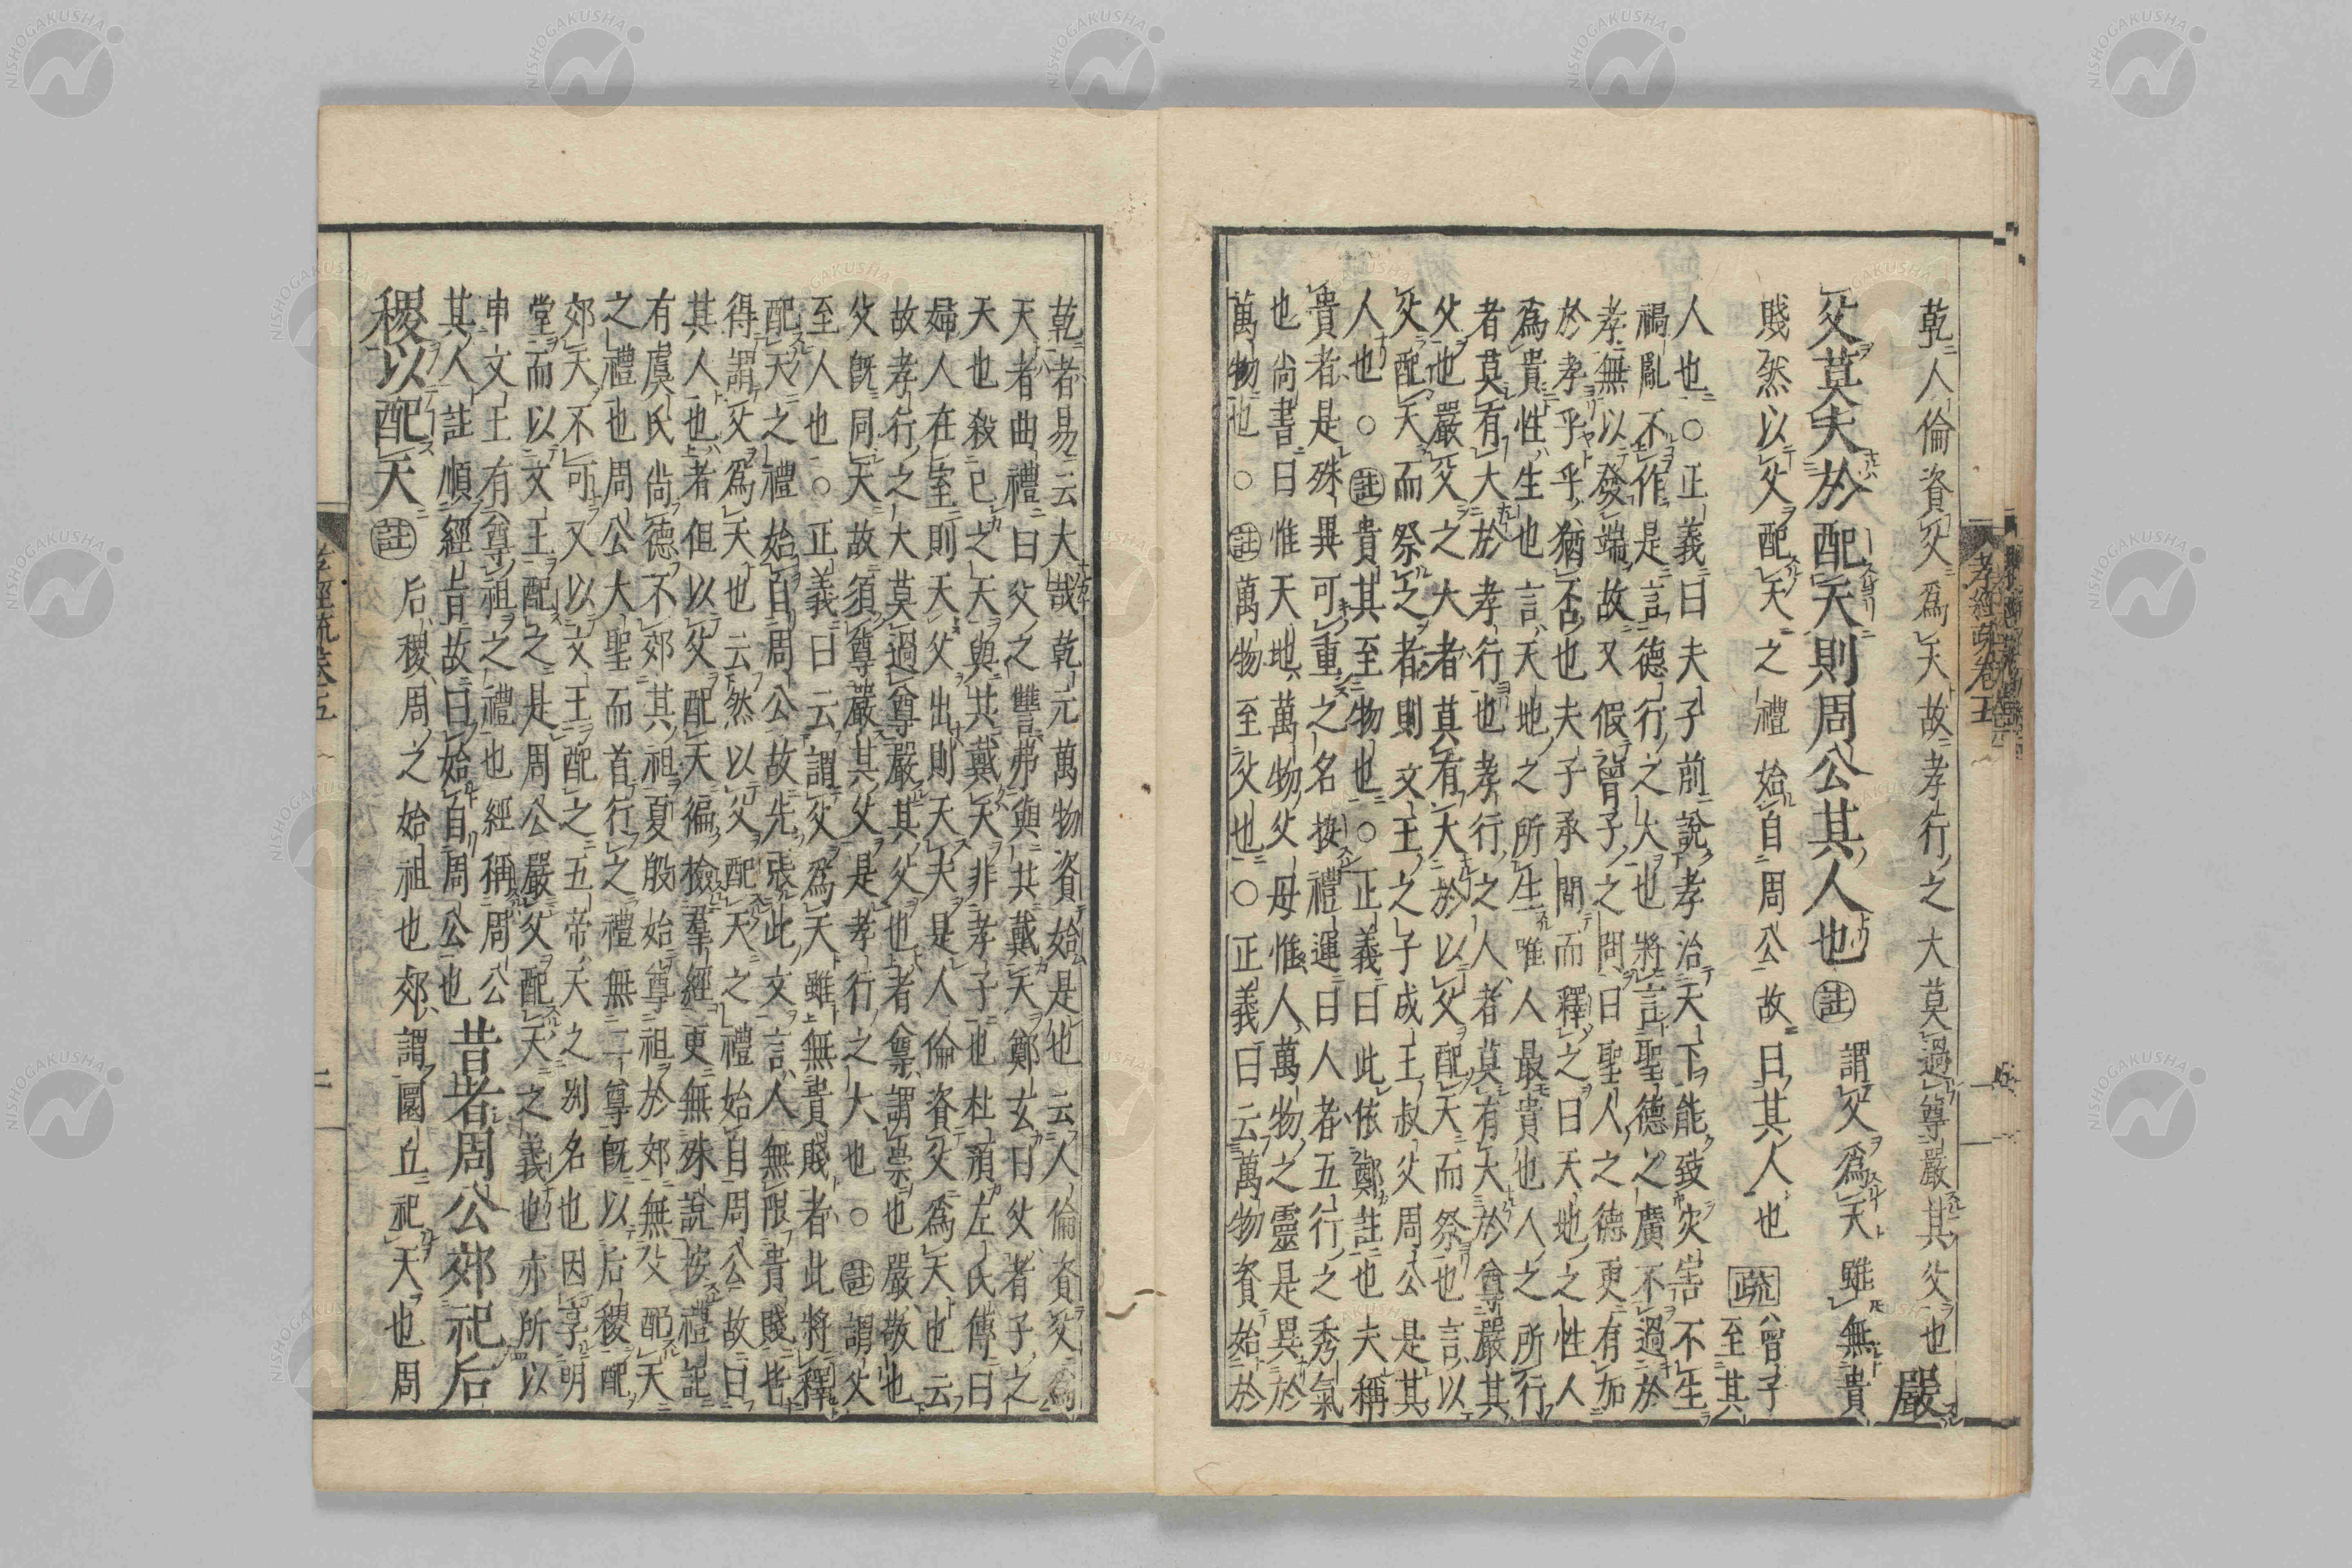 孝經疏卷五
乾人倫資父爲天故孝行之大莫過尊嚴其父也嚴
父莫大於配天則周公其人也註謂父爲天雖無貴
賤然以父配天之禮始自周公故曰其人也疏曾子至其
人也○正義曰夫子前說孝治天下能致災害不生
禍亂不作是言德行之大也將言聖德之廣不過於
孝無以發端故又假曾子之問曰聖人之德更有加
於孝乎乎猶否也夫子承問而釋之曰天地之性人
爲貴性生也言天地之所生唯人最貴也人之所行
者莫有大於孝行也孝行之人者莫有大於尊嚴其
父也嚴父之大者莫有大於以父配天而祭也言以
父配天而祭之者則文王之子成王叔父周公是其
人也○註貴其至物也○正義曰此依鄭註也夫稱
貴者是殊異可重之名按禮運曰人者五行之秀氣
也尚書曰惟天地萬物父母惟人萬物之靈是異於
萬物也○註萬物至父也○正義曰云萬物資始於
乾者易云大哉乾元萬物資始是也云人倫資父爲
天者曲禮曰父之讐弗與共戴天鄭玄曰父者子之
天也殺己之天與共戴天非孝子也杜預左氏傳曰
婦人在室則天父出則天夫是人倫資父爲天也云
故孝行之大莫過尊嚴其父也者尊謂崇也嚴敬也
父旣同天故須尊嚴其父是孝行之大也○註謂父
至人也○正義曰云謂父爲天雖無貴賤者此將釋
配天之禮始自周公故先張此文言人無限貴賤皆
得謂父爲天也云然以父配天之禮始自周公故曰
其人也者但以父配天徧檢羣經更無殊說按禮記
有虞氏尚德不郊其祖夏殷始尊祖於郊無父配天
之禮也周公大聖而首行之禮無二尊旣以后稷配
郊天不可又以文王配之五帝天之別名也因享明
堂而以文王配之是周公嚴父配天之義也亦所以
申文王有尊祖之禮也經稱周公
其人註順經旨故曰始自周公也昔者周公郊祀后
稷以配天註后稷周之始祖也郊謂圜丘祀天也周
孝經疏卷五
NISHOGAKUSHA